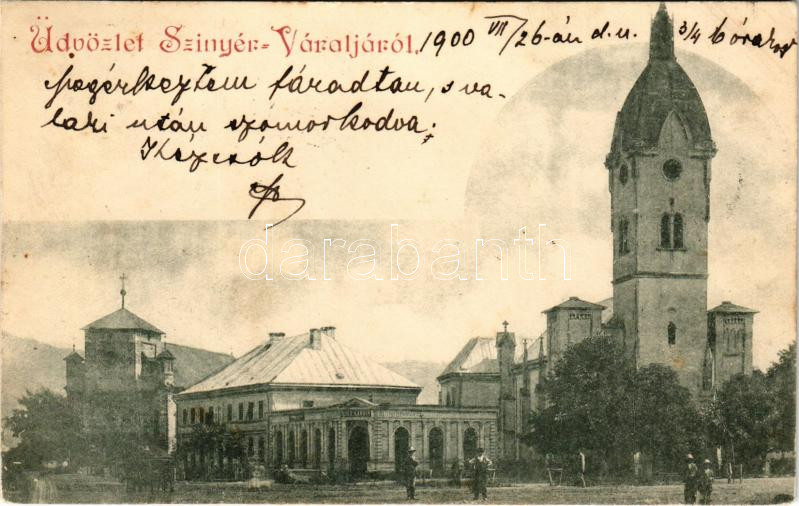 Üdvözlet Szinyér-Váraljáról, 1900 VII/26-án d. u. 3/4 6 órakor
Megérkeztem fáradtan, s va-
laki után szomorkodva.
Kézcsók
darabanth